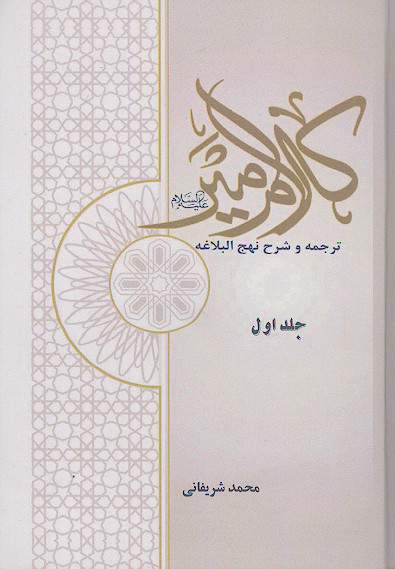 کلام امیر
علیه السلام
ترجمه و شرح نهج البلاغه
جلد اول
محمد شریفانی